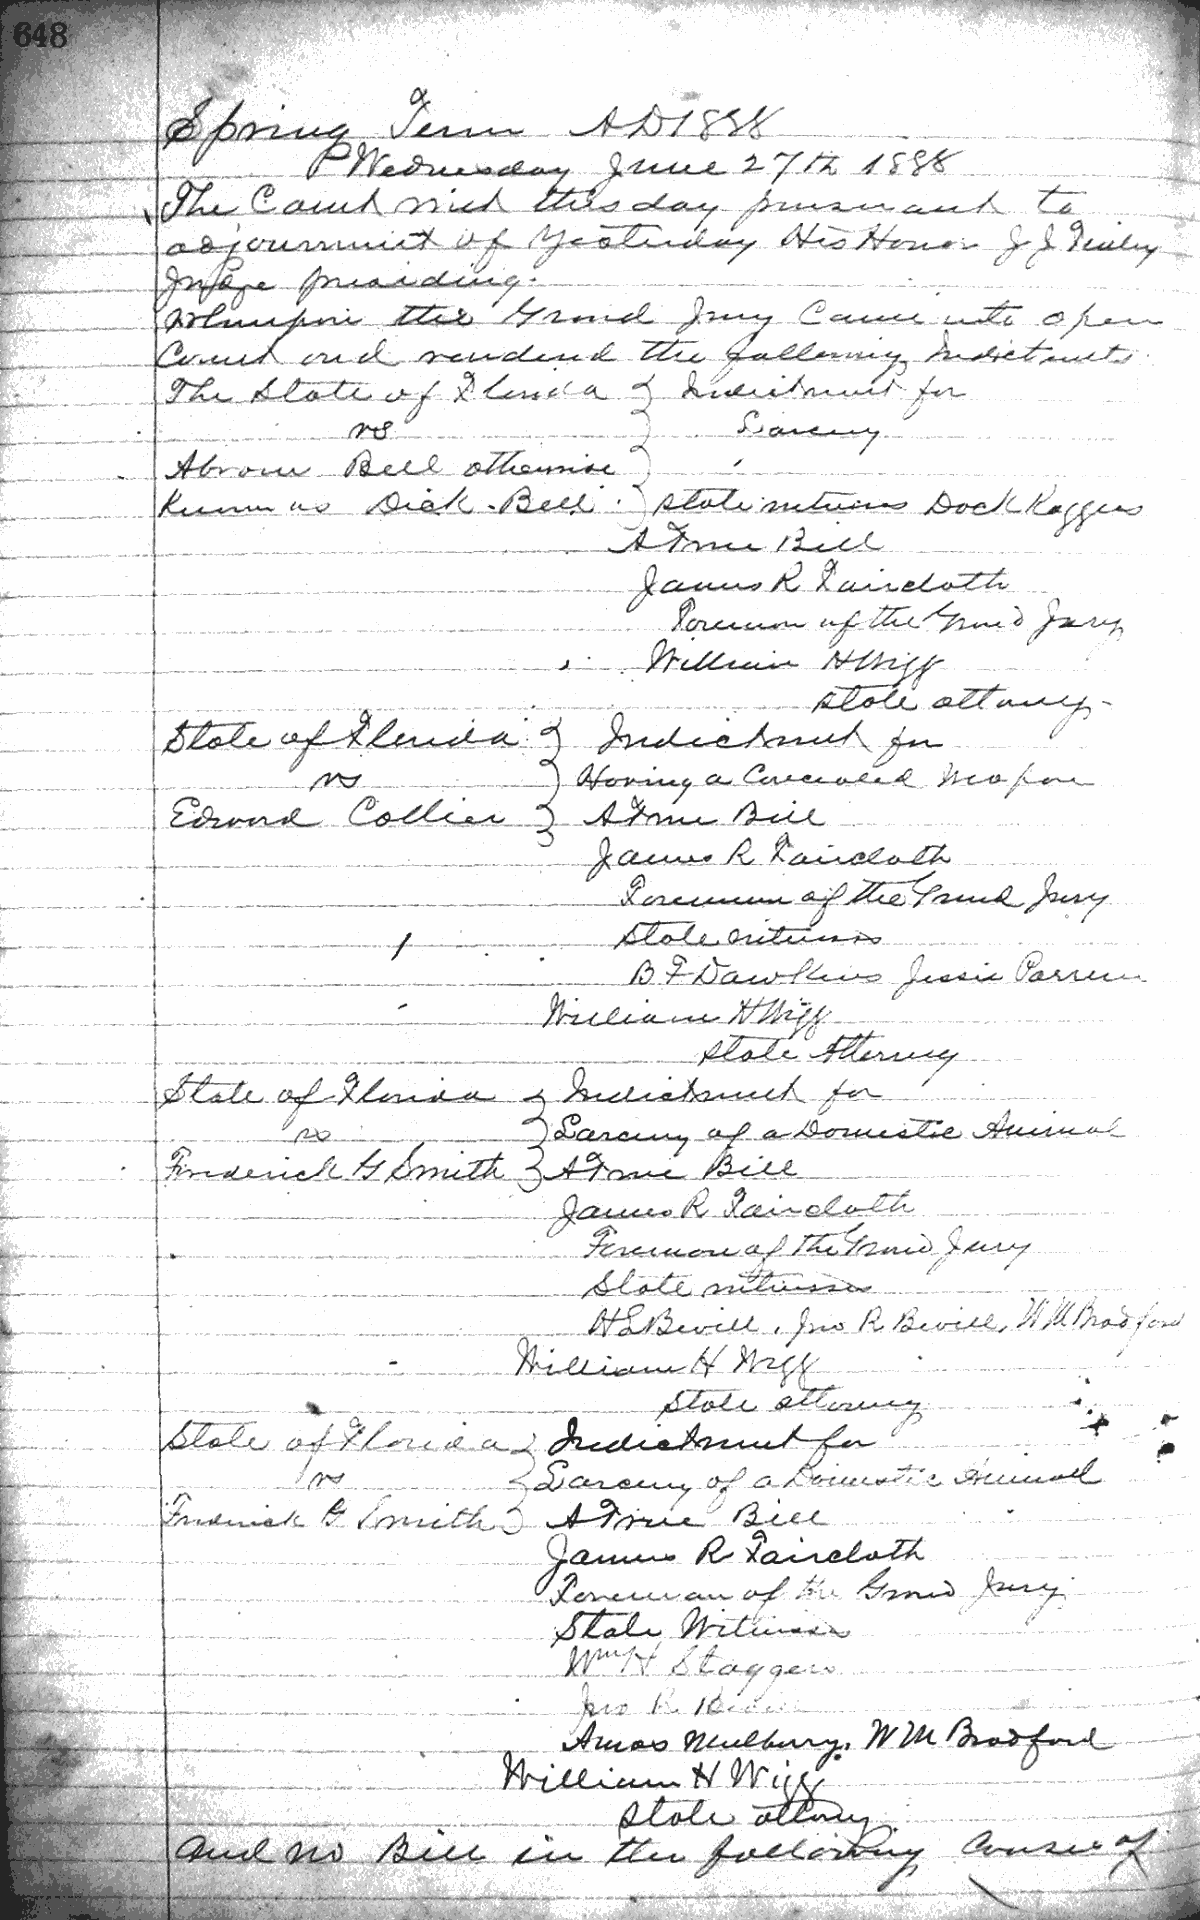 648
Spring Term AD 1888
Wednesday June 27th 1888
The Court met this day pursuant to
adjournment of Yesterday His Honor J J Finley
Judge presiding.
Whereupon the Grand Jury Came into open
Court and rendered the following Indictments
The State of Florida } Indictment for
vs } Larceny
Abram Bell otherwise }
Known as Dick Bell } State witness Dock Raggins
A True Bill
James R Faircloth
Foreman of the Grand Jury
William H Wigg
State attorney
State of Florida } Indictment for
vs } Having a Concealed Weapon
Edward Collier } A True Bill
James R Faircloth
Foreman of the Grand Jury
State witnesses
B F Dawkins Jessie
William H Wigg
State Attorney
State of Florida } Indictment for
vs } Larceny of a Domestic Animal
Frederick G Smith } A True Bill
James R Faircloth
Foreman of the Grand Jury
State witnesses
H L Bevill, Jno R Bevill, W M Bradford
William H Wigg
State attorney
State of Florida } Indictment for
vs } Larceny of a Domestic Animal
Frederick G Smith } A True Bill
James R Faircloth
Foreman of the Grand Jury
State Witnesses
Wm H Staggers
Jno R Bevill
Amos Mulberry, W M Bradford
William H Wigg
State attorney
And no Bill in the following Causes of